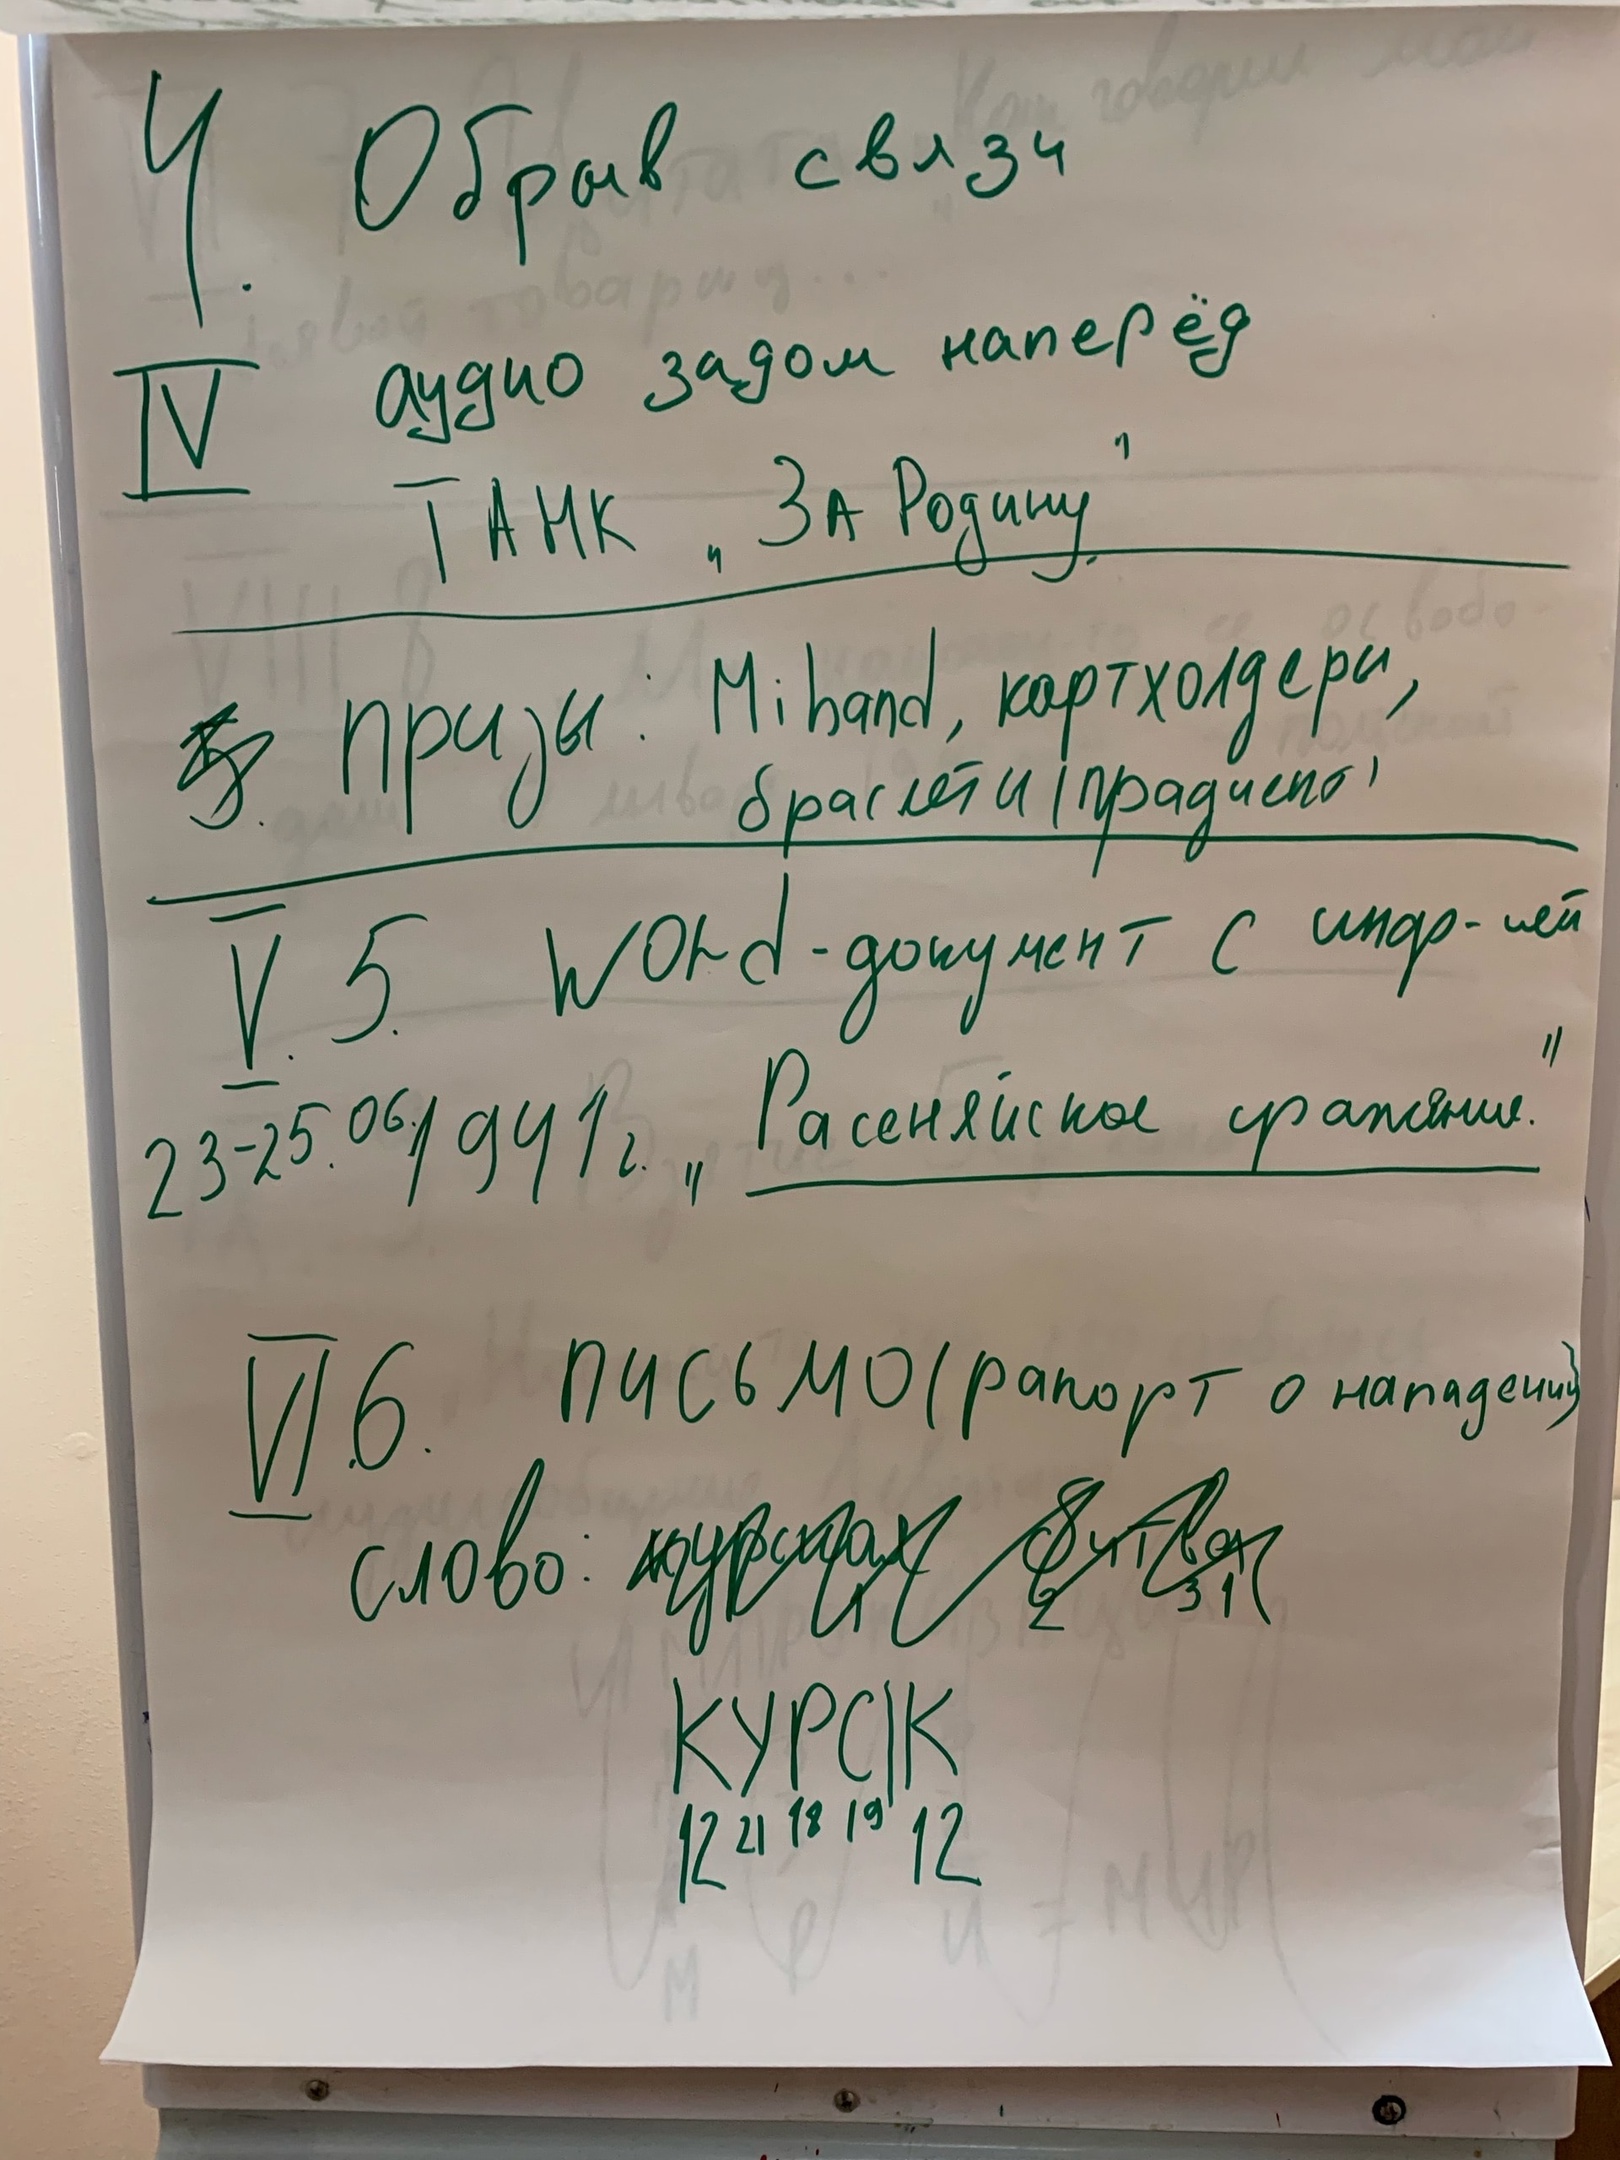 4. Обрыв связи
IV аудио задом наперёд
ТАНК „За Родину"
5. призы: Mi band, картхолдеры,
браслеты (
V. 5. Word-документ с инф-ией
23-25.06.1941г. „Расеняйское сражение."
VI 6. письмо (рапорт о нападении)
слово: курская битва
1 2 3 1
КУРС|К
12 21 18 19 12